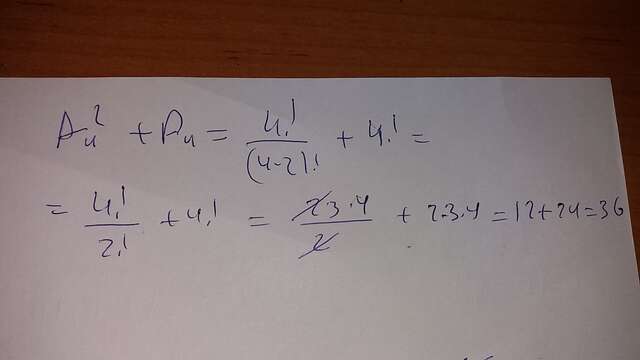 A₄² + P₄ = 4!/(4-2)! + 4! =
= 4!/2! + 4! = 2·3·4/2 + 2·3·4 = 12+24=36